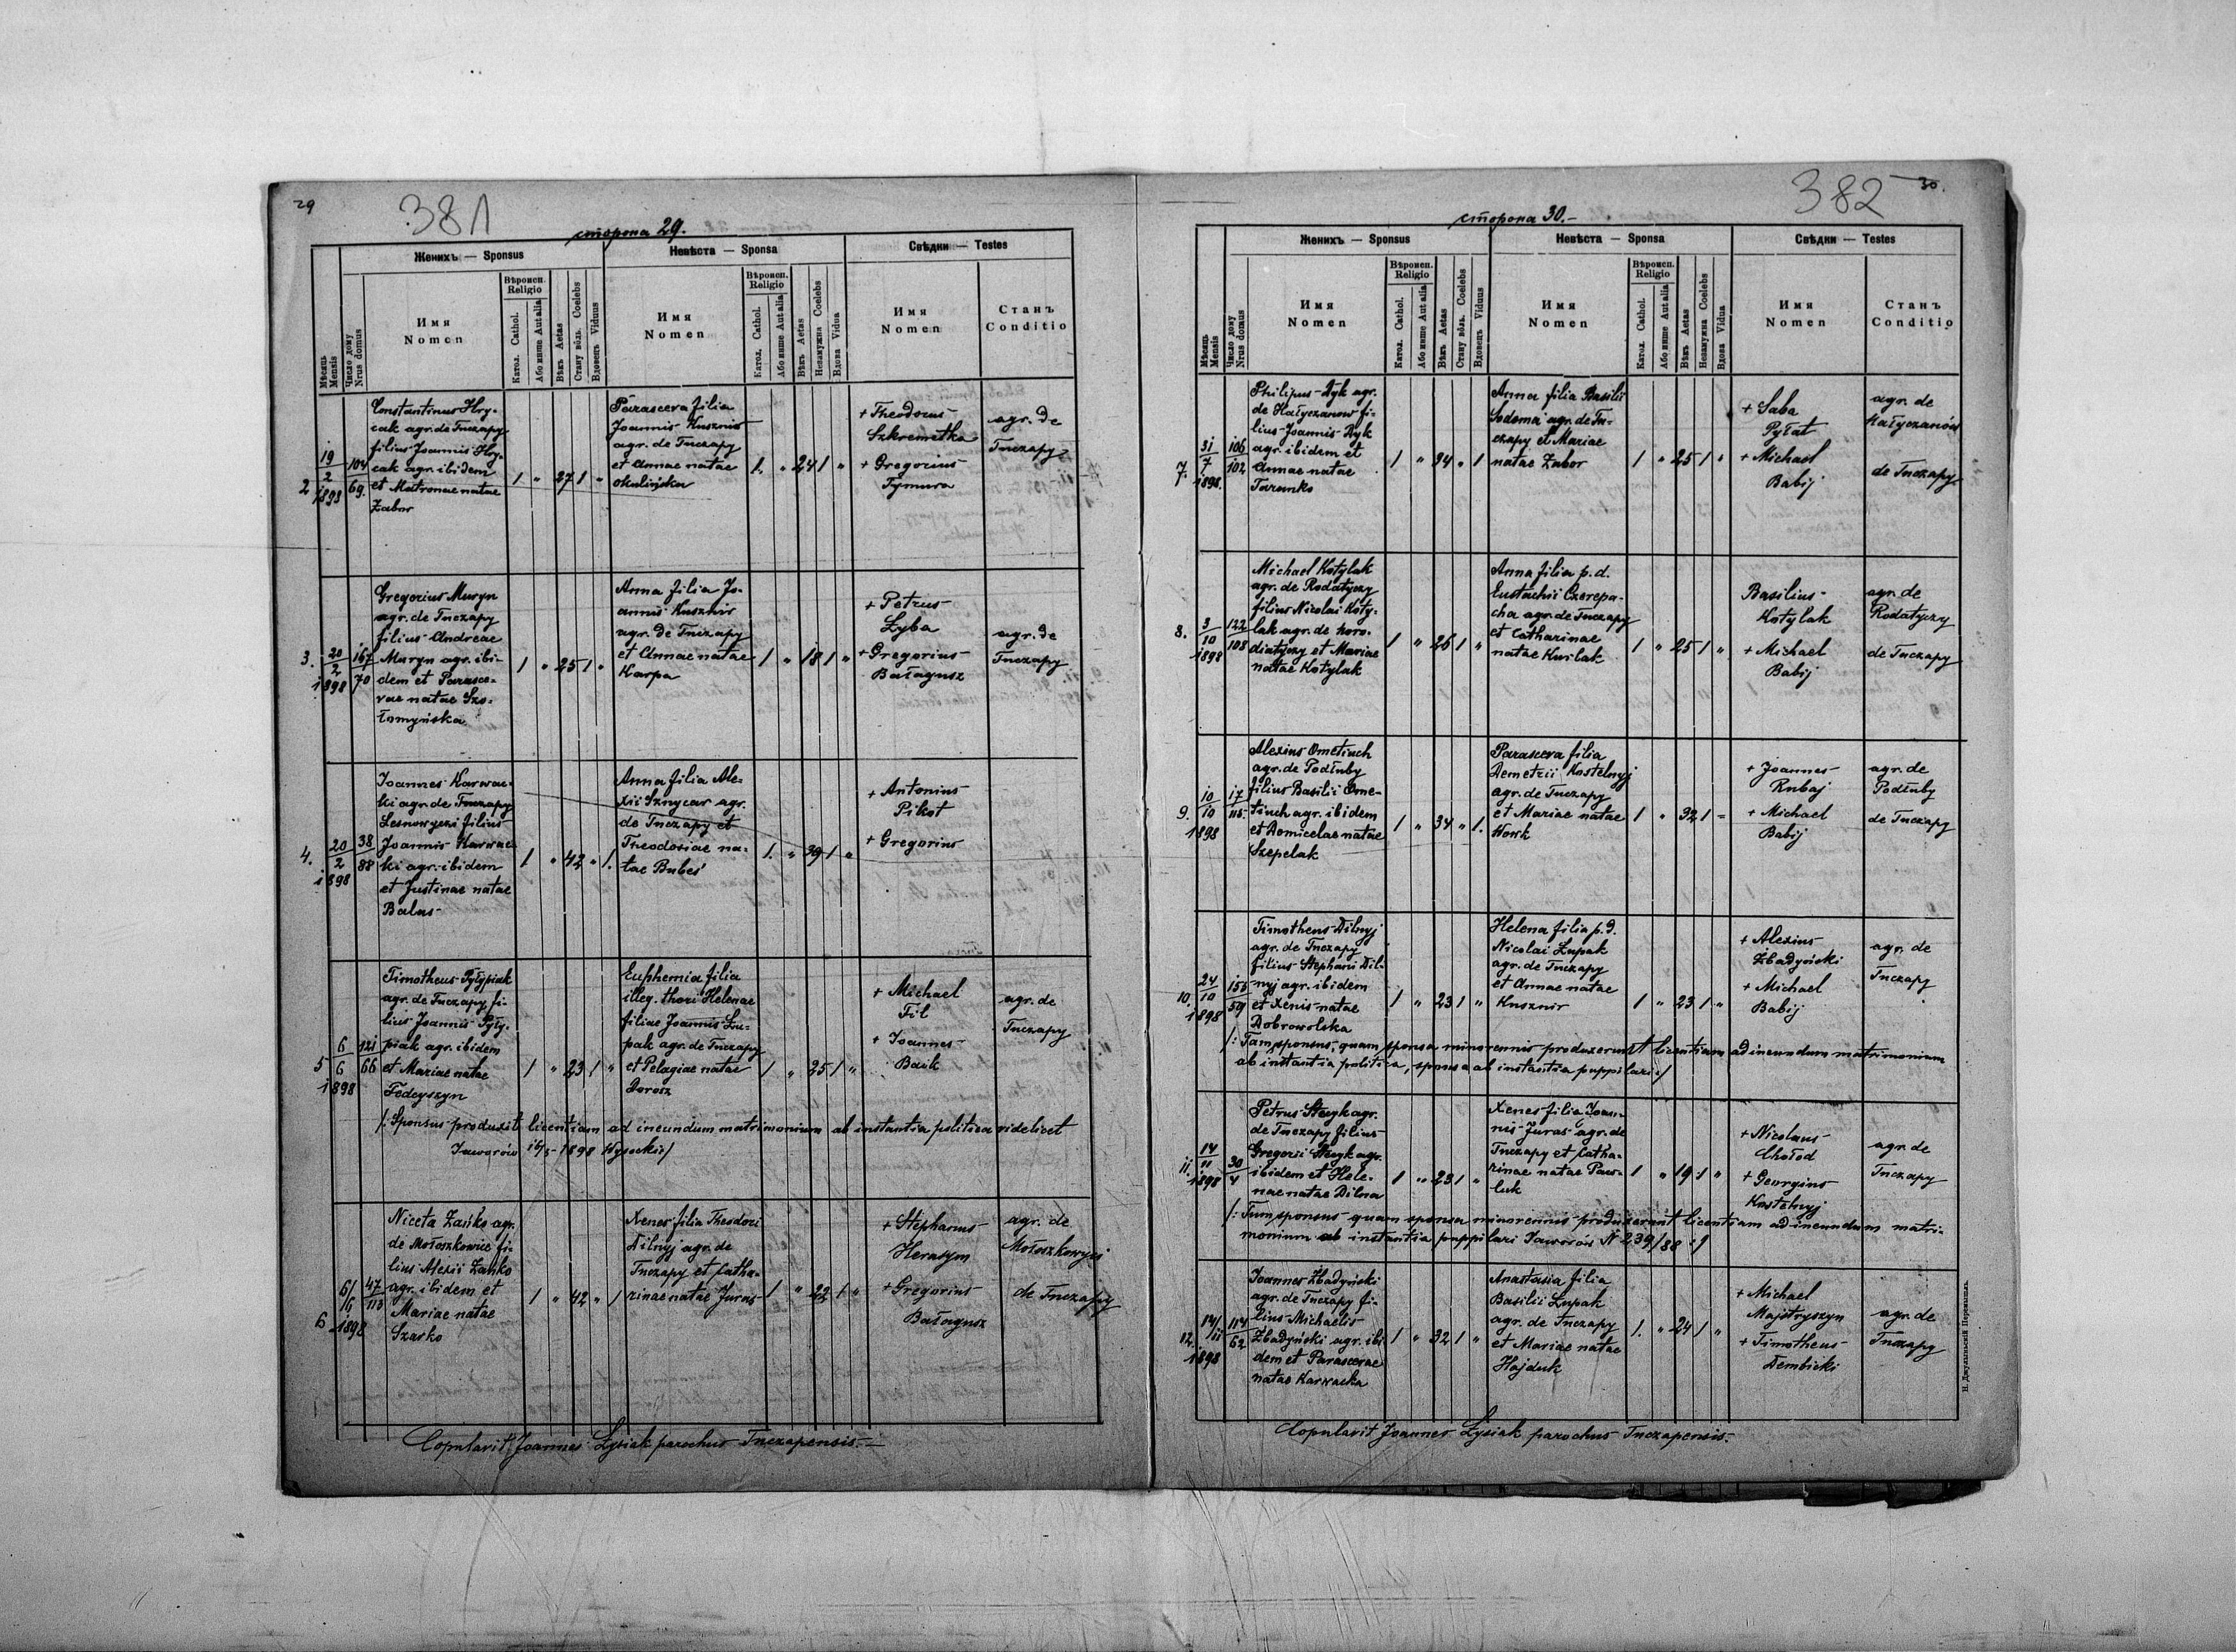 29
381
сторона 29.
Женихъ — Sponsus
Невѣста — Sponsa
Свѣдки — Testes
Мѣсяць Mensis
Число дому Nrus domus
Имя Nomen
Вѣроисп. Religio
Катол. Cathol.
Або инше Aut alia
Вѣкъ Aetas
Стану вôль. Coelebs
Вдовець Viduus
Имя Nomen
Вѣроисп. Religio
Катол. Cathol.
Або инше Aut alia
Вѣкъ Aetas
Незамужна Coelebs
Вдова Vidua
Имя Nomen
Станъ Conditio
2
19
2
1898
104
69.
Constantinus Hry-
cak agr. de Tuczapy
filius Joannis Hry-
cak agr. ibidem
et Matronae natae
Zabor
1 " 27 1 "
Parasceva filia
Joannis Kusznir
agr. de Tuczapy
et Annae natae
Okulińska
1. " 24 1 "
+ Theodorus
Szkremetka
+ Gregorius
Tymura
agr. de
Tuczapy
3.
20
2
1898
167
70
Gregorius Muryn
agr. de Tuczapy
filius Andreae
Muryn agr. ibi-
dem et Parasce-
vae natae Szo-
łomyńska
1 " 25 1 "
Anna filia Jo-
annis Kusznir
agr. de Tuczapy
et Annae natae
Karpa
1 " 18 1 "
+ Petrus
Zyba
+ Gregorius
Bałagusz
agr. de
Tuczapy
4.
20
2
1898
38
88
Joannes Karwac-
ki agr. de Tuczapy
Lesnowyczi filius
Joannis Karwac-
ki agr. ibidem
et Justinae natae
Balus
1 " 42 " 1.
Anna filia Ale-
xii Sznycar agr.
de Tuczapy et
Theodosiae na-
tae Bubes
1. " 39 1 "
+ Antonius
Pikot
+ Gregorius
5
6
6
1898
121
66
Timotheus Pyłypiak
agr. de Tuczapy fi-
lius Joannis Pyły-
piak agr. ibidem
et Mariae natae
Fedeyszyn
1 " 23 1 "
Euphemia filia
illeg. thori Helenae
filiae Joannis Łu-
pak agr. de Tuczapy
et Pelagiae natae
Dorosz
1 " 25 1 "
+ Michael
Fil
+ Joannes
Baik
agr. de
Tuczapy
/: Sponsus produxit licentiam ad ineundum matrimonium ab instantia politica videlicet
Jaworów 16/5 1898 Wysocki :/
6
6/
6
1898
47
113
Niceta Zańko agr.
de Mołoszkowice fi-
lius Alexii Zańko
agr. ibidem et
Mariae natae
Szarko
1 " 42 " 1
Xenes filia Theodori
Dilnyj agr. de
Tuczapy et Catha-
rinae natae Juras
1 " 22 1 "
+ Stephanus
Herasym
+ Gregorius
Bałagusz
agr. de
Mołoszkowyci
de Tuczapy
Copulavit Joannes Łysiak parochus Tuczapensis.
382
30.
сторона 30.
Женихъ — Sponsus
Невѣста — Sponsa
Свѣдки — Testes
Мѣсяць Mensis
Число дому Nrus domus
Имя Nomen
Вѣроисп. Religio
Катол. Cathol.
Або инше Aut alia
Вѣкъ Aetas
Стану вôль. Coelebs
Вдовець Viduus
Имя Nomen
Вѣроисп. Religio
Катол. Cathol.
Або инше Aut alia
Вѣкъ Aetas
Незамужна Coelebs
Вдова Vidua
Имя Nomen
Станъ Conditio
7.
31
7
1898.
106
102
Philipus Dyk agr.
de Hałyczanow fi-
lius Joannis Dyk
agr. ibidem et
Annae natae
Taranko
1 " 34 " 1
Anna filia Basilii
Sodoma agr. de Tu-
czapy et Mariae
natae Zabor
1 " 25 1 "
+ Saba
Pyłat
+ Michael
Babij
agr. de
Hałyczanów
de Tuczapy
8.
3
10
1898
122
108
Michael Kotylak
agr. de Rodatyczy
filius Nicolai Koty-
lak agr. de horo-
diatyczy et Mariae
natae Kotylak
1 " 26 1 "
Anna filia p. d.
Eustachii Czerepa-
cha agr. de Tuczapy
et Catharinae
natae Kurlak
1 " 25 1 "
Basilius
Kotylak
+ Michael
Babij
agr. de
Rodatyczy
de Tuczapy
9.
10
10
1898
17
115
Alexius Ometiuch
agr. de Podłuby
filius Basilii Ome-
tiuch agr. ibidem
et Domicelae natae
Szepelak
1 " 34 " 1.
Parasceva filia
Demetrii Kostelnyj
agr. de Tuczapy
et Mariae natae
Howk
1 " 32 1 "
+ Joannes
Rubaj
+ Michael
Babij
agr. de
Podłuby
de Tuczapy
10.
24
10
1898
155
59
Timotheus Dilnyj
agr. de Tuczapy
filius Stephani Dil-
nyj agr. ibidem
et Xenis natae
Dobrowolska
1 " 23 1 "
Helena filia p. d.
Nicolai Łupak
agr. de Tuczapy
et Annae natae
Kusznir
1 " 23 1 "
+ Alexius
Zbadyński
+ Michael
Babij
agr. de
Tuczapy
/: Tam sponsus, quam sponsa minorennis produxerunt licentiam ad ineundum matrimonium
ab instantia politica, sponsa ab instantia puppilari :/
11.
14
11
1898
30
4
Petrus Stecyk agr.
de Tuczapy filius
Gregorii Stecyk agr.
ibidem et Hele-
nae natae Dilna
1 " 23 1 "
Xenes filia Joan-
nis Juras agr. de
Tuczapy et Catha-
rinae natae Paw-
luk
1 " 19 1 "
+ Nicolaus
Chołod
+ Georgius
Kostelnyj
agr. de
Tuczapy
/: Tum sponsus quam sponsa minorennis produxerunt licentiam ad ineundum matri-
monium ab instantia puppilari Jaworów N 239/88 :/
12.
14/
11
1898
114
62
Joannes Zbadyński
agr. de Tuczapy fi-
lius Michaelis
Zbadyński agr. ibi-
dem et Parascevae
natae Karwacka
1 " 32 1 "
Anastasia filia
Basilii Łupak
agr. de Tuczapy
et Mariae natae
Hajduk
1. " 24 1 "
+ Michael
Majstryszyn
+ Timotheus
Dembicki
agr. de
Tuczapy
Copulavit Joannes Łysiak parochus Tuczapensis.
Н. Джулыньскій Перемышль.